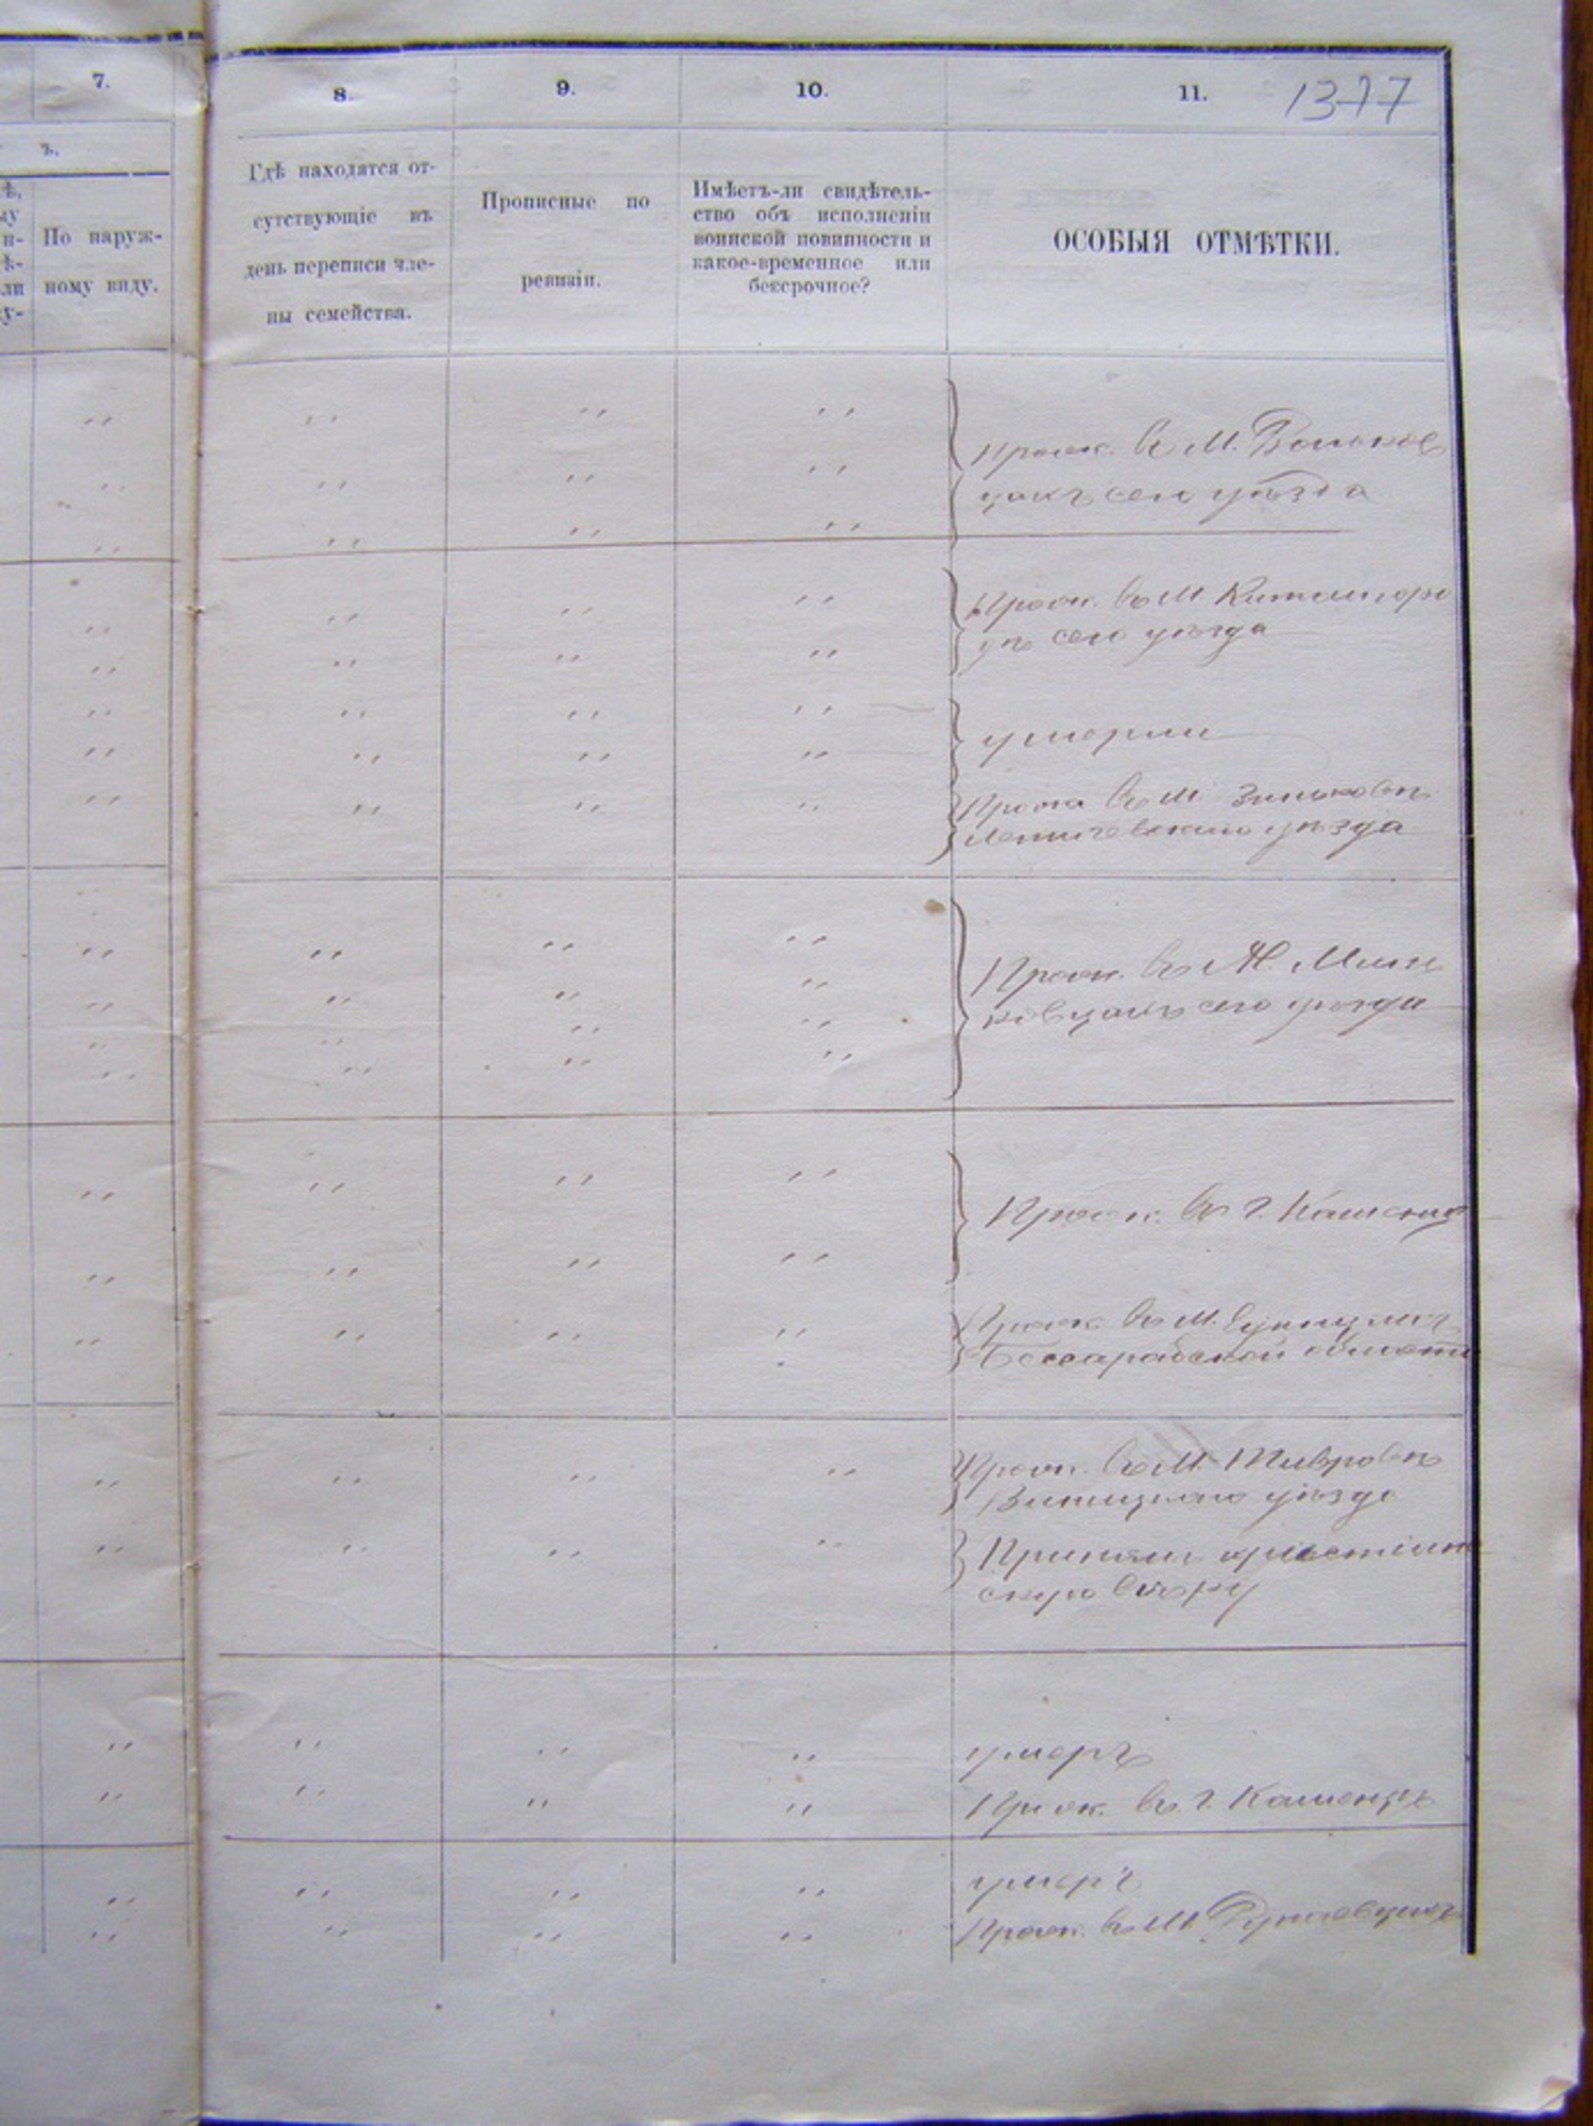 7.
8.
9.
10.
11.
1377
ъ.
По наруж-
ному виду.
Гдѣ находятся от-
сутствующіе въ
день переписи чле-
ны семейства.
Прописные по
ревизіи.
Имѣетъ-ли свидѣтель-
ство объ исполненіи
воинской повинности и
какое-временное или
безсрочное?
ОСОБЫЯ ОТМѢТКИ.
Прож. въ М.
цахъ сего уѣзда
Прож. въ М. Китайгоро
дѣ сего уѣзда
умерли
Прожи въ М. Зиньковѣ
Летичевскаго уѣзда
Прож. въ М. Минь
ковцахъ сего уѣзда
Прож. въ г. Каменцѣ
Прож. въ М.
Бессарабской области
Прож. въ М. Тывровѣ
Виницкаго уѣзда
Приняли христіан
скую вѣру
умеръ
Прож. въ г. Каменцѣ
умеръ
Прож. въ М. Дунаевцахъ